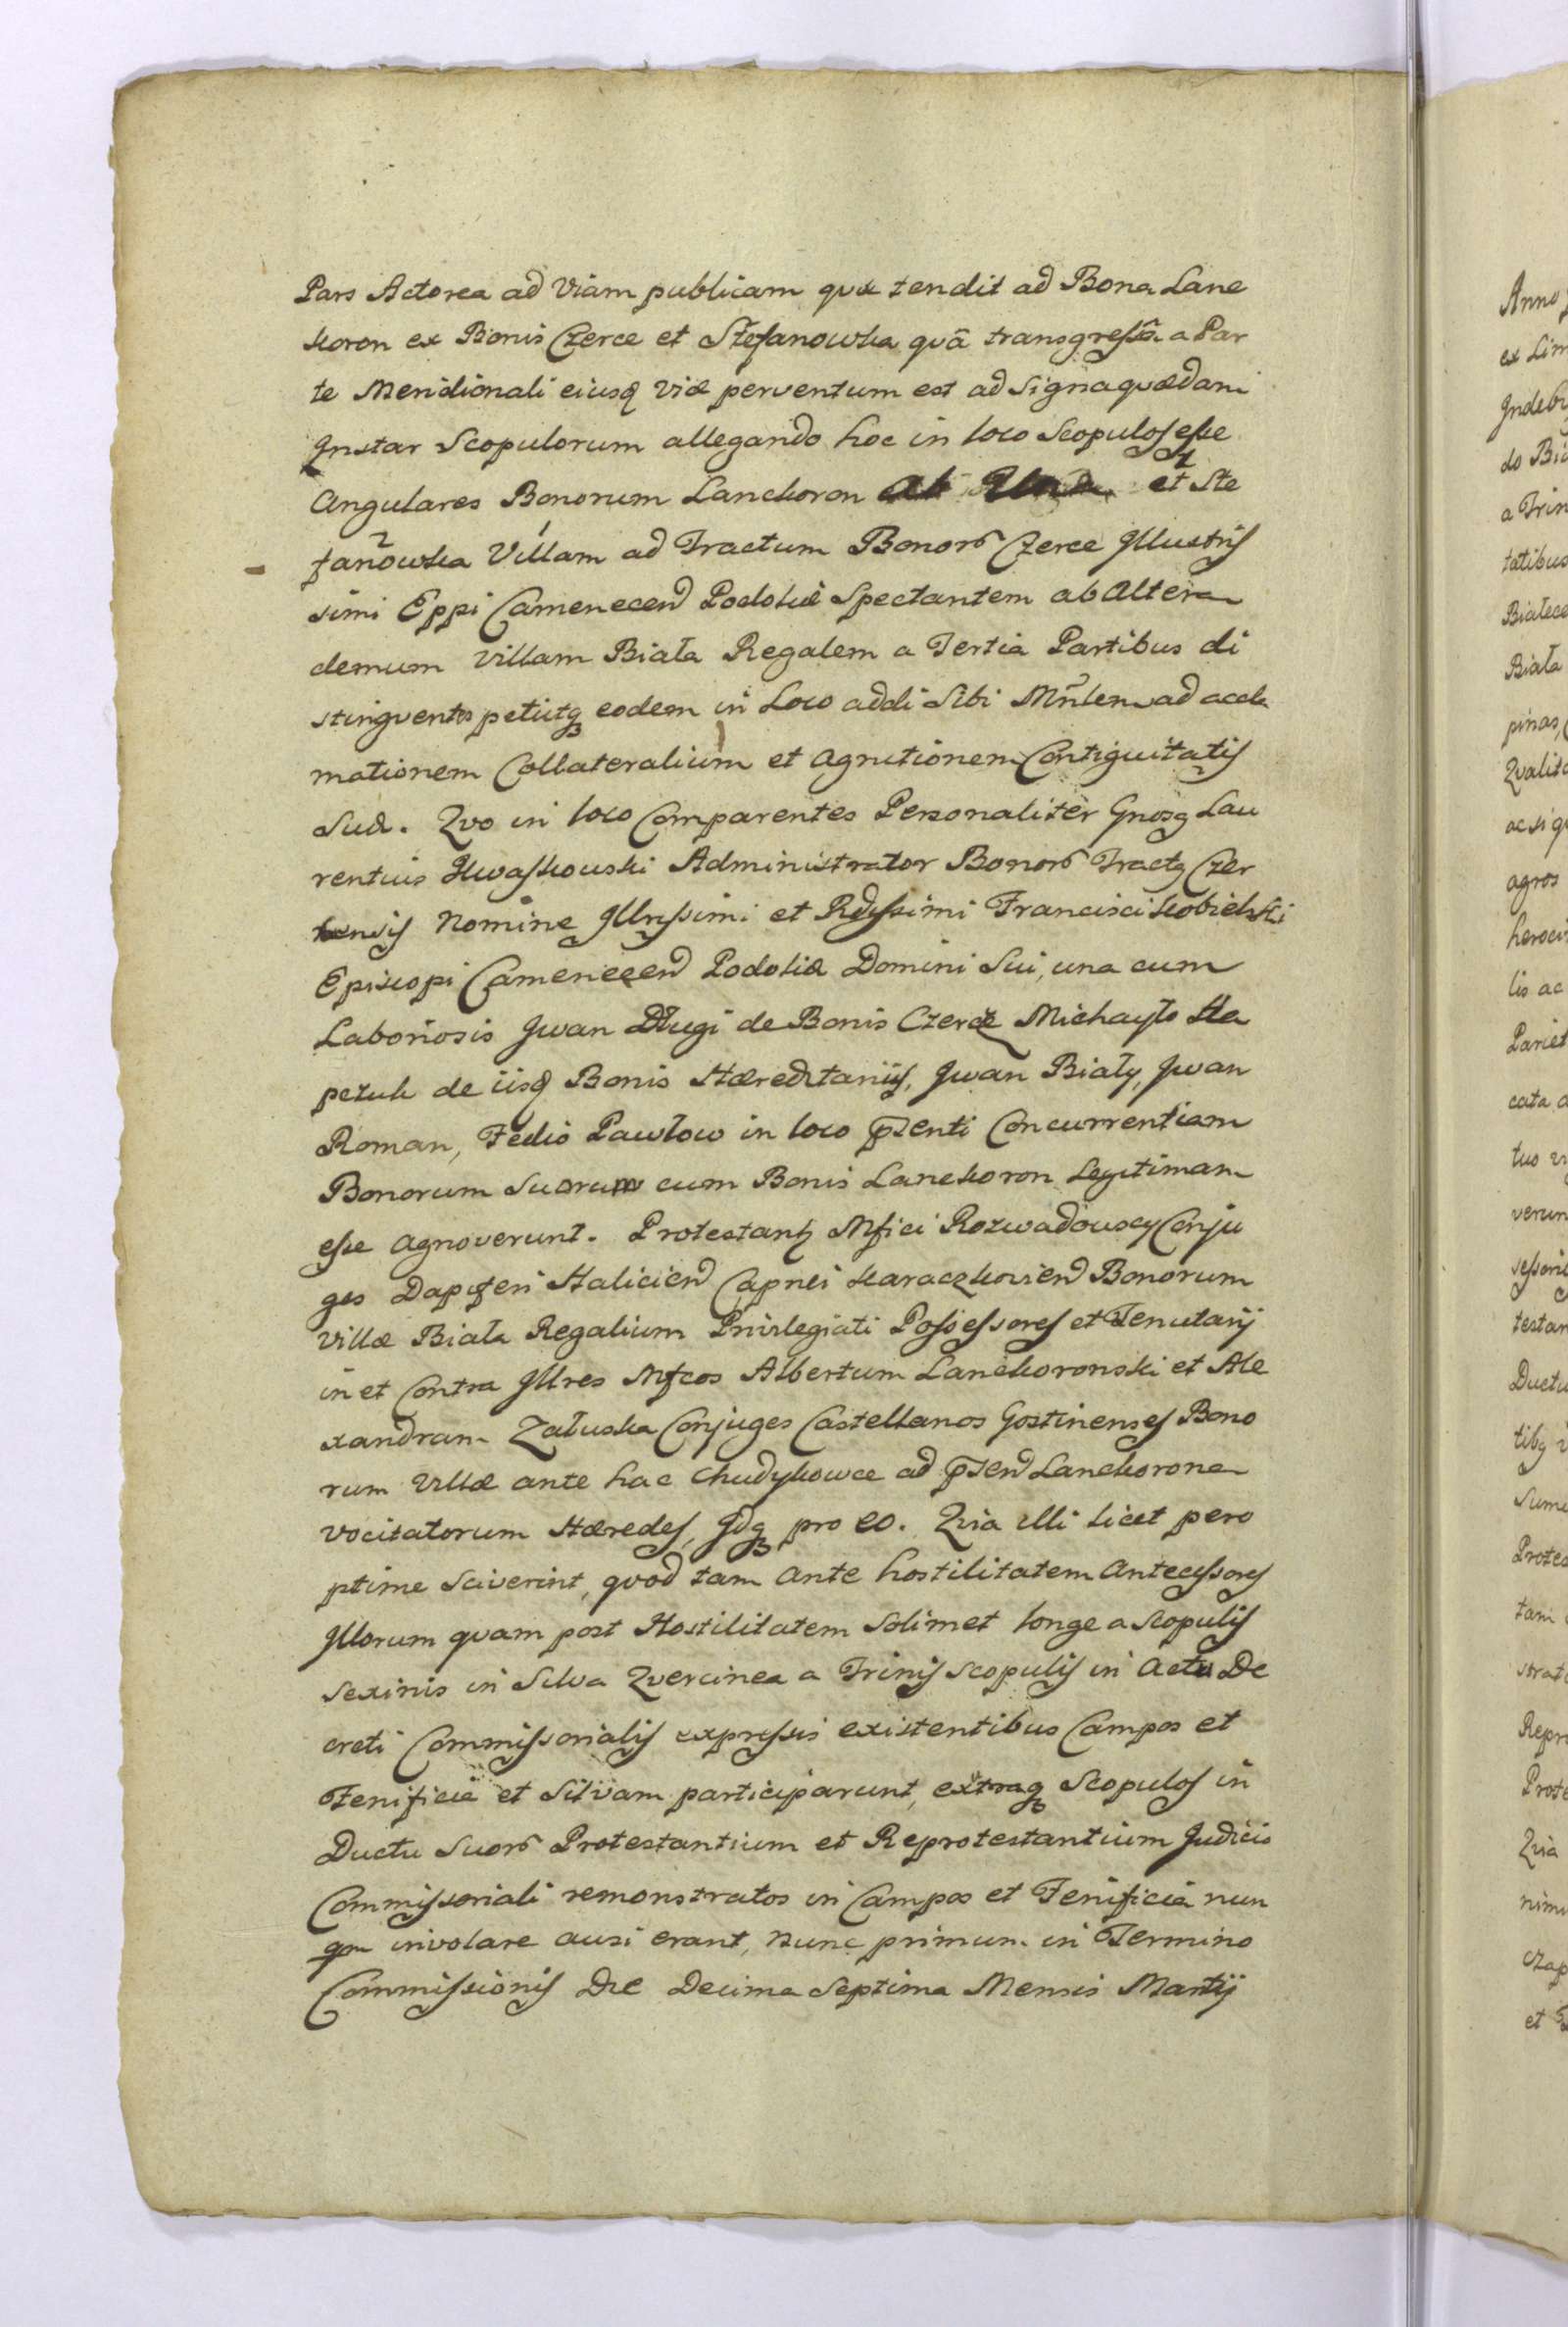 Pars Actorea ad Viam publicam quæ tendit ad Bona Lanc
koron ex Bonis Czerce et Stefanowka quâ transgressâ a Par
te Meridionali eiusq viæ perventum est ad signa quædam
Instar Scopulorum allegando hoc in loco Scopulos esse
Angulares Bonorum Lanckoron et Ste
fanowka Villam ad Tractum Bonor Czerce Illustris
simi Eppi Camenecen Podoliæ Spectantem ab altera
demum villam Biała Regalem a Tertia Partibus di
stingventes petiitq eodem in Loco addi Sibi Mnlem ad accla
mationem Collateralium et agnitionem Contiguitatis
Suæ. Qvo in loco Comparentes Personaliter Gnosq Lau
rentius Kwaskouski Administrator Bonor Tractq Czer
censis Nomine Illrissimi et Rdissimi Francisci Kobielski
Episcopi Camenecen Podoliæ Domini Sui, una cum
Laboriosis Jwan Długi de Bonis Czerce Michayło Ha
petuk de iisq Bonis Hæreditariis, Jwan Biały, Jwan
Roman, Fedio Pawłow in loco pzenti Concurrentiam
Bonorum Suorum cum Bonis Lanckoron Legitimam
esse agnoverunt. Protestant Mfici Rozwadouscy Conju
ges Dapiferi Halicien Capnei Karaczkovien Bonorum
Villæ Biała Regalium Privilegiati Possessores et Tenutarij
in et Contra Illres Mfcos Albertum Lanckoronski et Ale
xandram Załuska Conjuges Castellanos Gostinenses Bono
rum Villæ ante hac Chudykowce ad pzen Lanckorona
vocitatorum Hæredes, Idq pro eo. Qvia illi licet pero
ptime Sciverint, qvod tam ante hostilitatem Antecessores
Illorum quam post Hostilitatem Solimet longe a Scopulis
sexinis in Silva Qvercinea a Trinis Scopulis in Actu De
creti Commissorialis expressis existentibus Campos et
Fenificia et Silvam participarunt, extraq Scopulos in
Ductu Suor Protestantium et Reprotestantium Judicio
Commissoriali remonstratos in Campos et Fenificia nun
qm involare ausi erant, nunc primum in Termino
Commissionis Die Decima Septima Mensis Martij